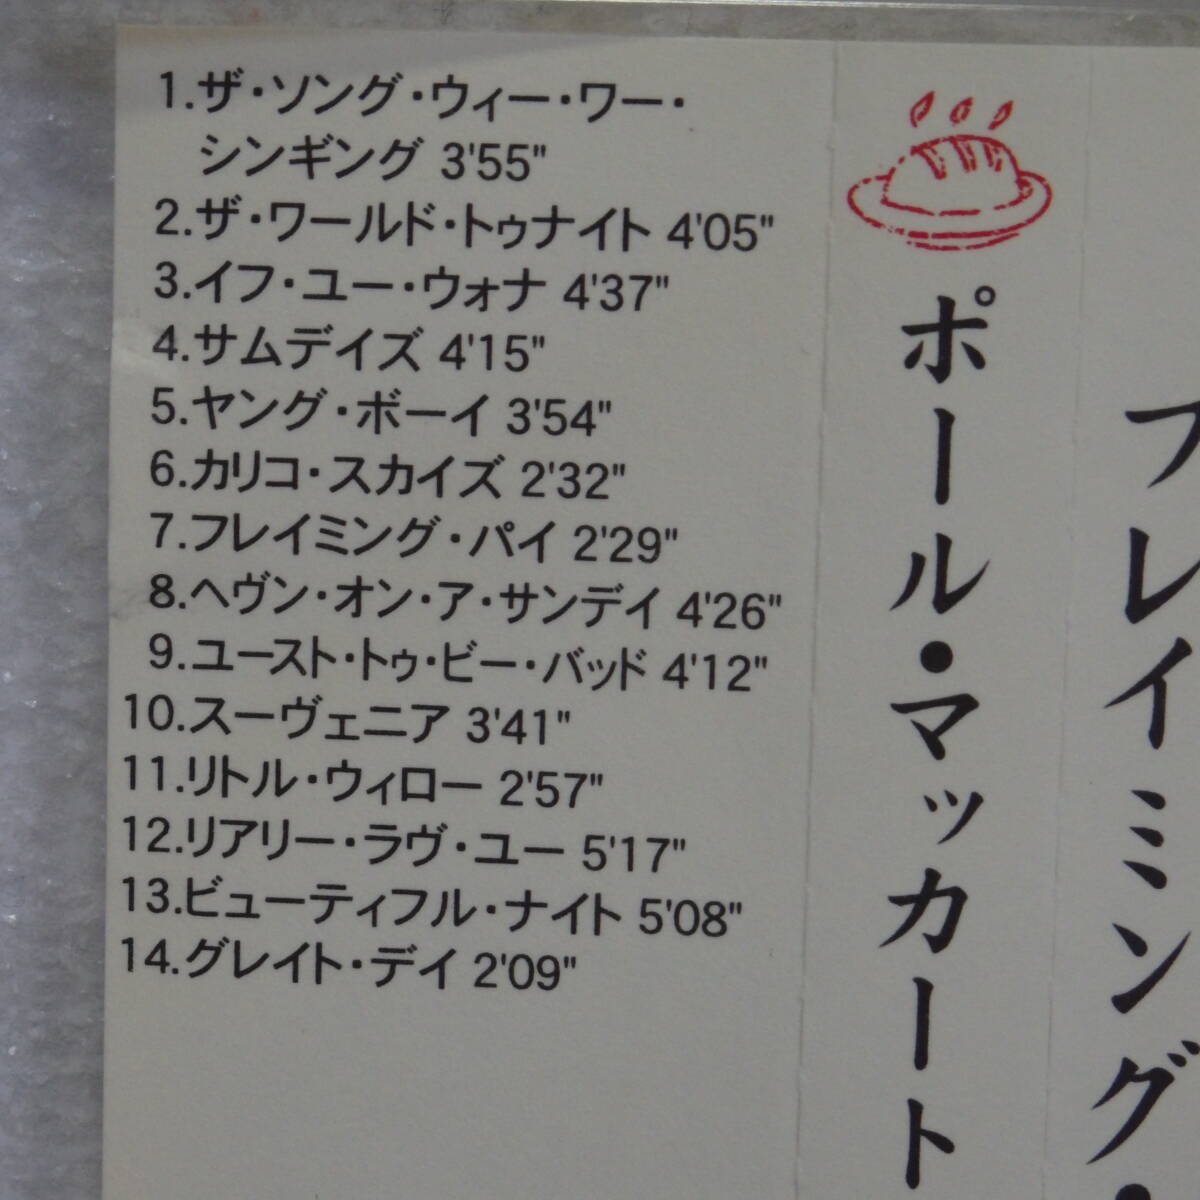 1.ザ・ソング・ウィー・ワー・
シンギング 3'55"
2.ザ・ワールド・トゥナイト 4'05"
3.イフ・ユー・ウォナ 4'37"
4.サムデイズ 4'15"
5.ヤング・ボーイ 3'54"
6.カリコ・スカイズ 2'32"
7.フレイミング・パイ 2'29"
8.ヘヴン・オン・ア・サンデイ 4'26"
9.ユースト・トゥ・ビー・バッド 4'12"
10.スーヴェニア 3'41"
11.リトル・ウィロー 2'57"
12.リアリー・ラヴ・ユー 5'17"
13.ビューティフル・ナイト 5'08"
14.グレイト・デイ 2'09"
ポール・マッカート
フレイミング・